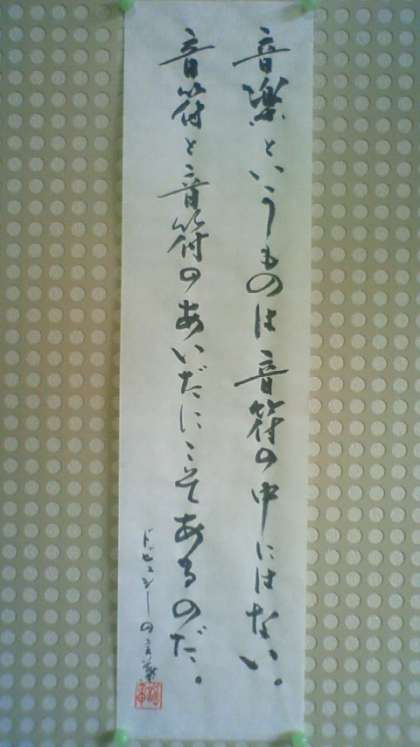 音楽というものは音符の中にはない。
音符と音符のあいだにこそあるのだ。
ドビュッシーの言葉